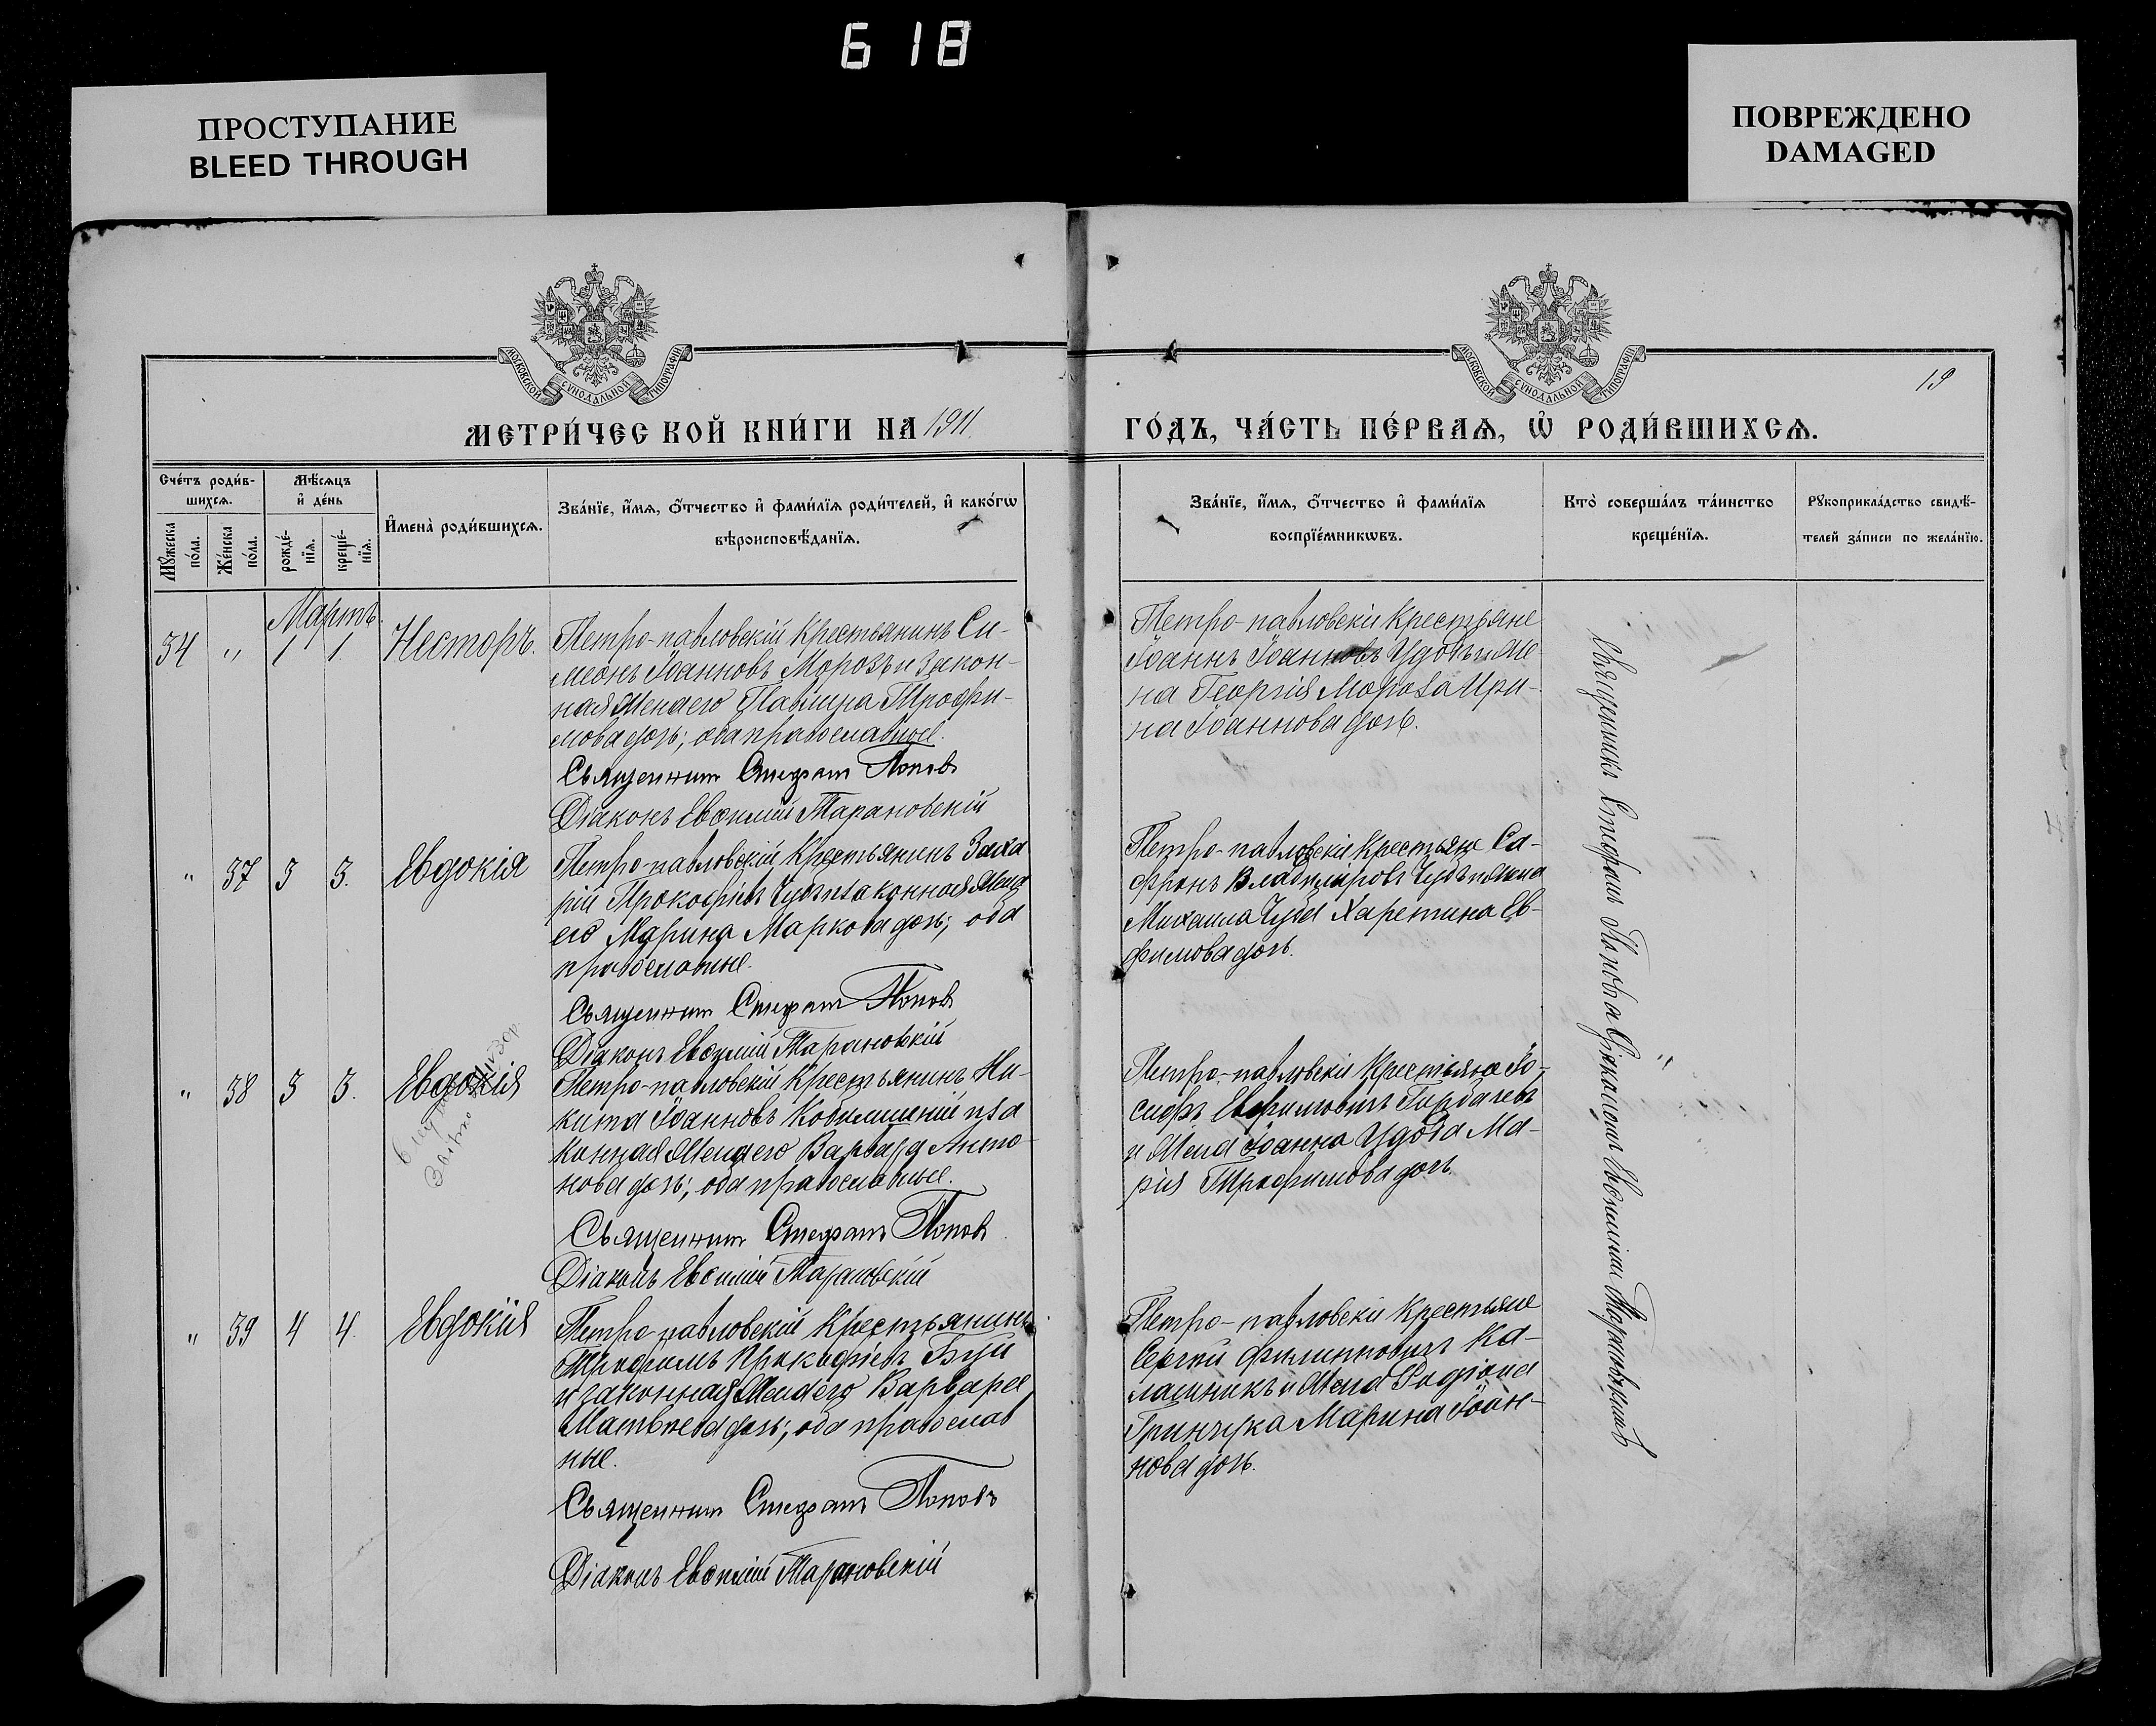 618
ПРОСТУПАНИЕ
BLEED THROUGH
ПОВРЕЖДЕНО
DAMAGED
МОСКОВСКОЙ СѴНОДАЛЬНОЙ ТИПОГРАФІИ
МОСКОВСКОЙ СѴНОДАЛЬНОЙ ТИПОГРАФІИ
19
МЕТРИ́ЧЕСКОЙ КНИ́ГИ НА 1911
ГО́ДЪ, ЧА́СТЬ ПЕ́РВАѦ, Ѽ РОДИ́ВШИХСѦ.
Сче́тъ роди́в-
шихсѧ.
Мꙋ́жеска
по́ла.
Же́нска
по́ла.
Мѣ́сѧцъ
и҆ де́нь
рожде́-
нїѧ.
креще́-
нїѧ.
И҆мена̀ роди́вшихсѧ.
Зва́нїе, и҆́мѧ, ѻ҆́тчество и҆ фами́лїѧ роди́телей, и҆ како́гѡ
вѣроисповѣ́данїѧ.
Зва́нїе, и҆́мѧ, ѻ҆́тчество и҆ фами́лїѧ
воспрїе́мникѡвъ.
Кто̀ соверша́лъ та́инство
креще́нїѧ.
Рꙋкоприкла́дство свидѣ́-
телей за́писи по жела́нїю.
Мартъ
34 " 1 1. Несторъ.
Петро-павловскій крестьянинъ Си-
меонъ Іоанновъ Морозъ и закон-
ная жена его Павлина Трофи-
мова дочь; оба православные.
Священникъ Стефанъ Поповъ
Діаконъ Евѳимій Тарановскій
Петро-павловскіе крестьяне
Іоаннъ Іоанновъ Удовъ и же-
на Георгія Мороза Ири-
на Іоаннова дочь.
" 37 3 3. Евдокія
Петро-павловскій крестьянинъ Заха
рій Прокофіевъ Чубъ и законная жена
его Марина Маркова дочь; оба
православные.
Священникъ Стефанъ Поповъ
Діаконъ Евѳимій Тарановскій
Петро-павловскіе крестьяне Са-
фронъ Владиміровъ Чубъ и жена
Михаила Чуба Харетина Ев-
фимова дочь.
" 38 3 3. Евдокія
Петро-павловскій крестьянинъ Ни-
кита Іоанновъ Кобылинскій и за
конная жена его Варвара Анто-
нова дочь; оба православные.
Священникъ Стефанъ Поповъ
Діаконъ Евѳимій Тарановскій
Петро-павловскіе крестьяне Іо-
сифъ Евфимовичъ Горбачевъ
и жена Іоанна Удова Ма-
рія Трофимова дочь.
" 39 4 4. Евдокія
Петро-павловскій крестьянинъ
Трофимъ Прокофіевъ Буй
и законная жена его Варвара
Матвѣева дочь; оба православ
ные.
Священникъ Стефанъ Поповъ
Діаконъ Евѳимій Тарановскій
Петро-павловскіе крестьяне
Сергѣй Филипповичъ Ка-
лашникъ и жена Родіона
Гринчука Марина Іоан-
нова дочь.
Священникъ Стефанъ Поповъ а діакономъ Евѳиміемъ Тарановскимъ